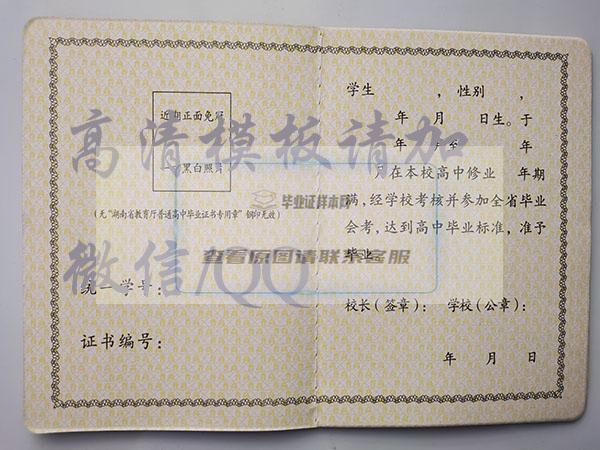 近期正面免冠
黑白照片
(无“湖南省教育厅普通高中毕业证书专用章”钢印无效)
统一学号:
证书编号:
学生 , 性别 ,
年 月 日生。于
年 年
月在本校高中修业 年期
满,经学校考核并参加全省毕业
会考,达到高中毕业标准,准予
毕业
校长(签章): 学校(公章):
年 月 日
高清模板请加
微信/QQ
毕业证样本网
查看原图请联系客服